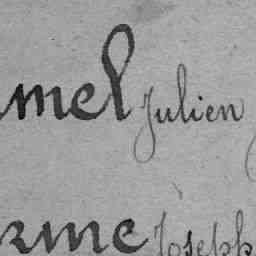 mel Julien
rme Joseph